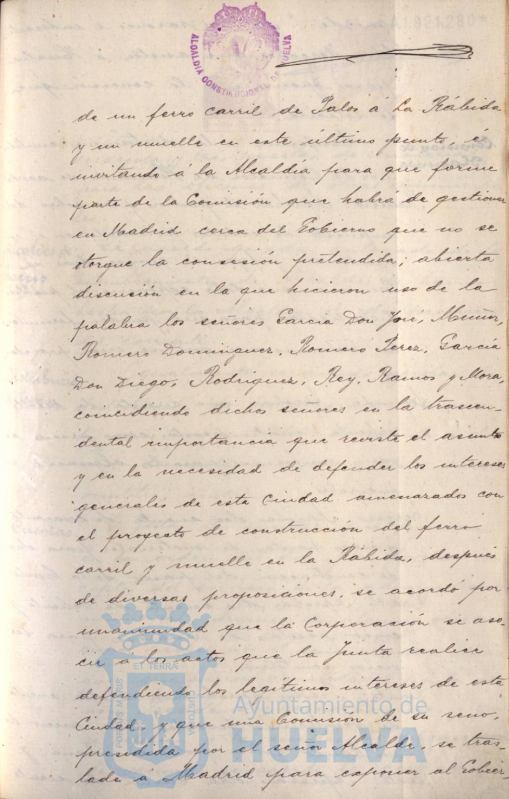 ALCALDIA CONSTITUCIONAL DE HUELVA
de un ferro carril de Palos á La Rábida
y un muelle en este último punto, é
invitando á la Alcaldía para que forme
parte de la Comisión que habrá de gestionar
en Madrid cerca del Gobierno que no se
otorgue la consesión pretendida; abierta
discusión en la que hicieron uso de la
palabra los señores García Don José, Muñoz,
Romero Dominguez, Romero Perez, García
Don Diego, Rodriguez, Rey, Ramos y Mora,
coincidiendo dichos señores en la trascen-
dental importancia que reviste el asunto
y en la necesidad de defender los intereses
generales de esta Ciudad amenazados con
el proyecto de construcción del ferro
carril y muelle en la Rábida, después
de diversas proposiciones, se acordó por
unanimidad que la Corporación se aso-
cie á los actos que la Junta realice
defendiendo los legítimos intereses de esta
Ciudad, y que una Comisión de su seno,
presidida por el señor Alcalde, se tras-
lade á Madrid para exponer al Gobier-
Ayuntamiento de
HUELVA